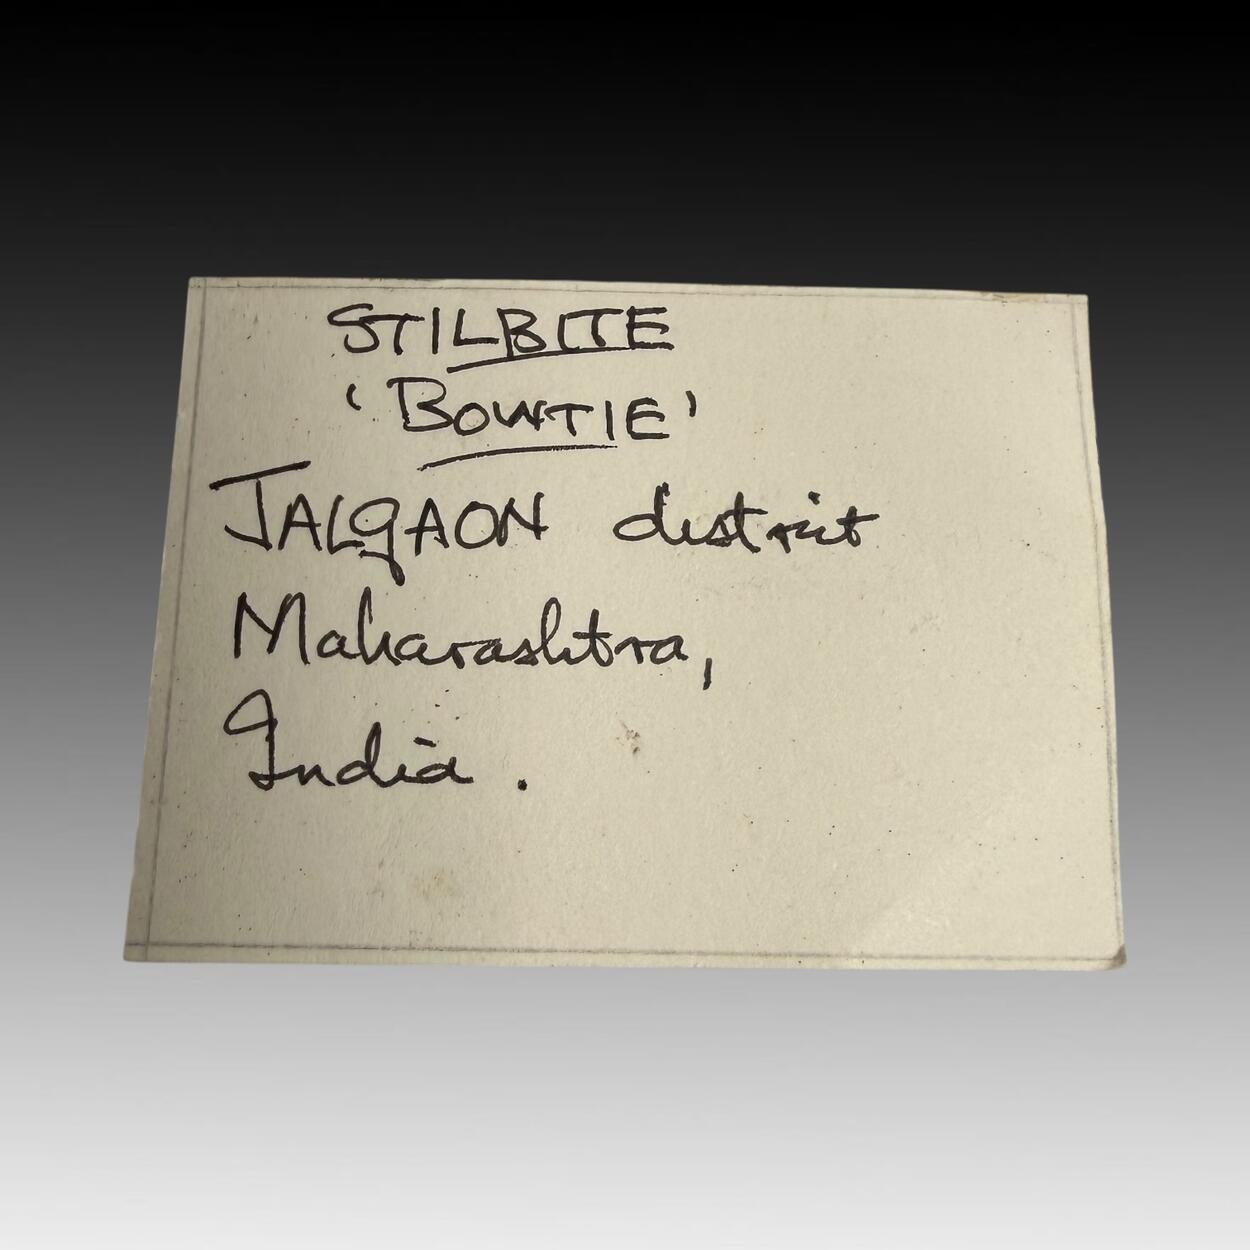 STILBITE
'BOWTIE'
JALGAON district
Maharashtra,
India.